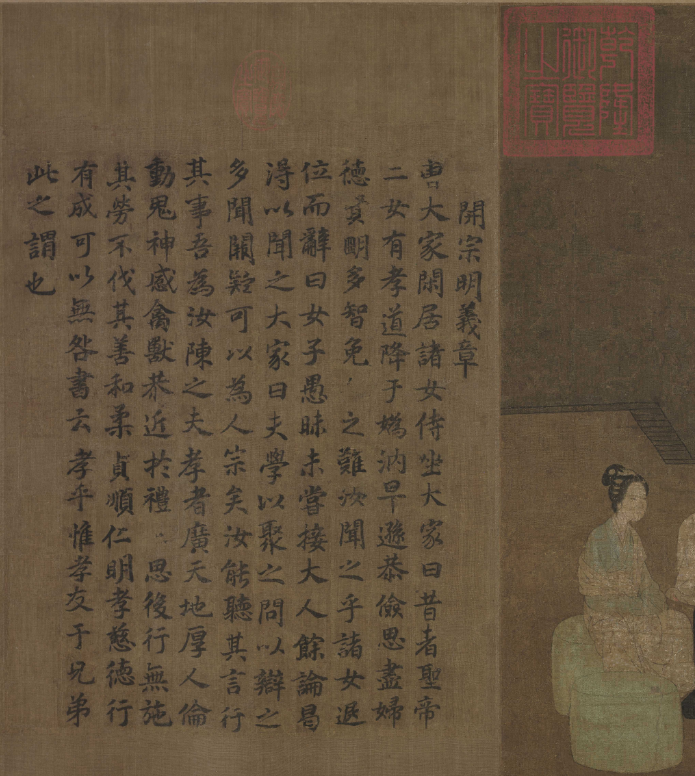 開宗明義章
曹大家閑居諸女侍坐大家曰昔者聖帝
二女有孝道降于媯汭卑遜恭儉思盡婦
德賢明多智免之難汝聞之乎諸女退
位而辭曰女子愚昧未嘗接大人餘論曷
得以聞之大家曰夫學以聚之問以辯之
多聞闕疑可以為人宗矣汝能聽其言行
其事吾為汝陳之夫孝者廣天地厚人倫
動鬼神感禽獸恭近於禮思後行無施
其勞不伐其善和柔貞順仁明孝慈德行
有成可以無咎書云孝乎惟孝友于兄弟
此之謂也
乾隆
御覽
之寶